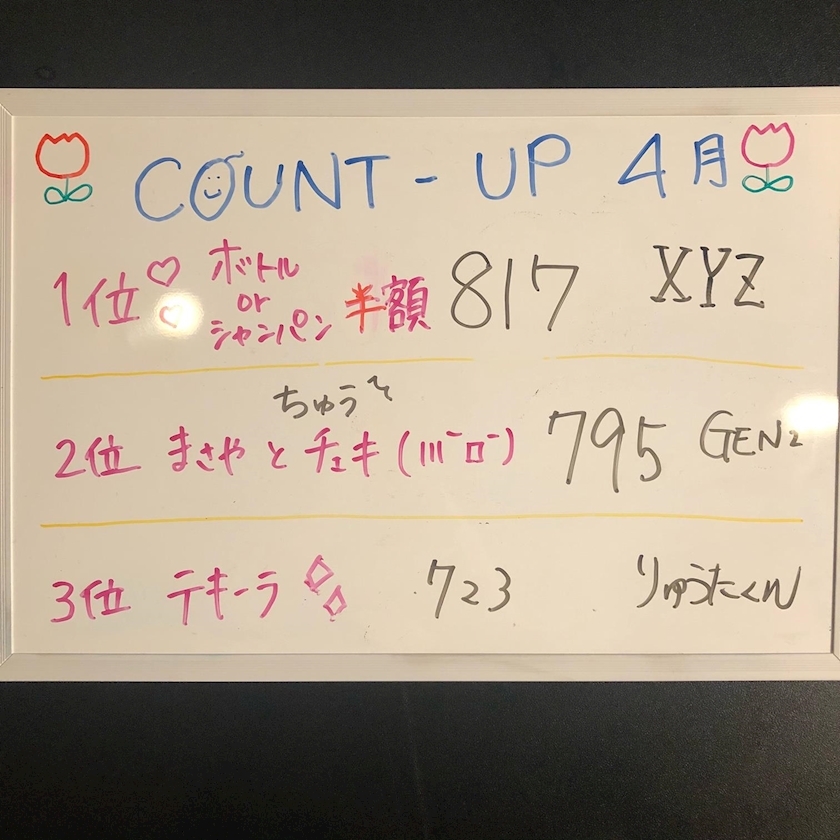 COUNT-UP 4月
1位 ボトル
or
シャンパン 半額 817 XYZ
ちゅうそ
2位 まさやとチェキ(ハ゛ロ゛) 795 GEN2
3位 テキーラ 723 りゅうたくん